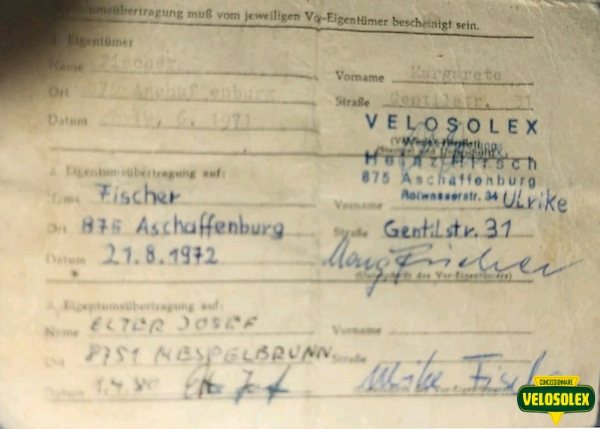 Eigentumsübertragung muß vom jeweiligen Vor-Eigentümer bescheinigt sein.
1. Eigentümer
Name Fischer Vorname Margarete
Ort 875 Aschaffenburg Straße Gentilstr. 31
Datum 6. 1971
VELOSOLEX
Heinz Hirsch
875 Aschaffenburg
Rotwasserstr. 34
2. Eigentumsübertragung auf:
Name Fischer Vorname Ulrike
Ort 875 Aschaffenburg Straße Gentilstr. 31
Datum 21.8.1972 Marg. Fischer
(Unterschrift des Vor-Eigentümers)
3. Eigentumsübertragung auf:
Name ELTER JOSEF Vorname
Ort 8751 MESPELBRUNN Straße
Datum 1.4.80 Ulrike Fischer
CONCESSIONNAIRE
VELOSOLEX